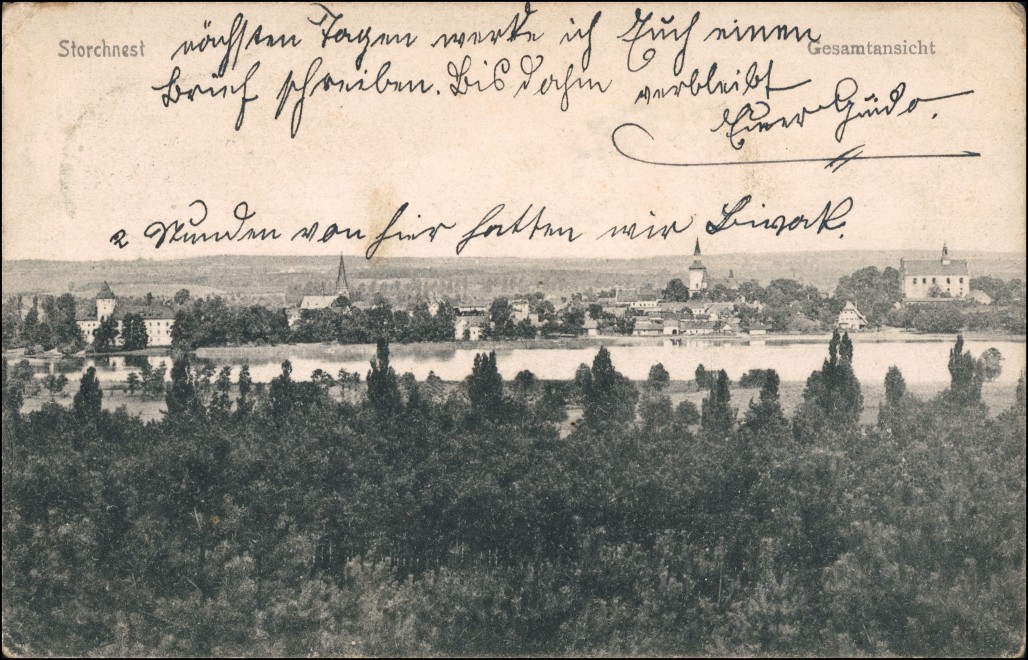 Storchnest
Gesamtansicht
nächsten Tagen werde ich Euch einen
Brief schreiben. Bis dahin verbleibt
Euer Guido.
2 Stunden von hier hatten wir Biwak.